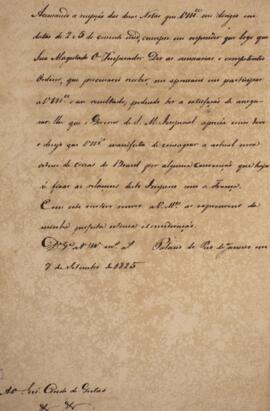 Accusando a recepção das duas Notas que V. Mce. me dirigio em
datas de 2 e 5 do corrente mez, cumpre-me responder que logo que
Sua Magestade O Imperador Der as necessarias e competentes
Ordens, que procurarei receber, me apressarei em participar
a V. Mce. o seu resultado, podendo ter a satisfação de assegu-
rar-lhe que o Governo de S. M. Imperial aprecia como deve
o dezejo que V. Mce. manifesta de consagrar a actual nova
ordem de cousas do Brasil por alguma Convenção que haja
de fixar as relações deste Imperio com a França.
Com este motivo renovo a V. Mce. as expressoens da
minha perfeita estima e consideração.
Palacio do Rio de Janeiro em
7 de Setembro de 1825
Ao Snr. Conde de Gestas